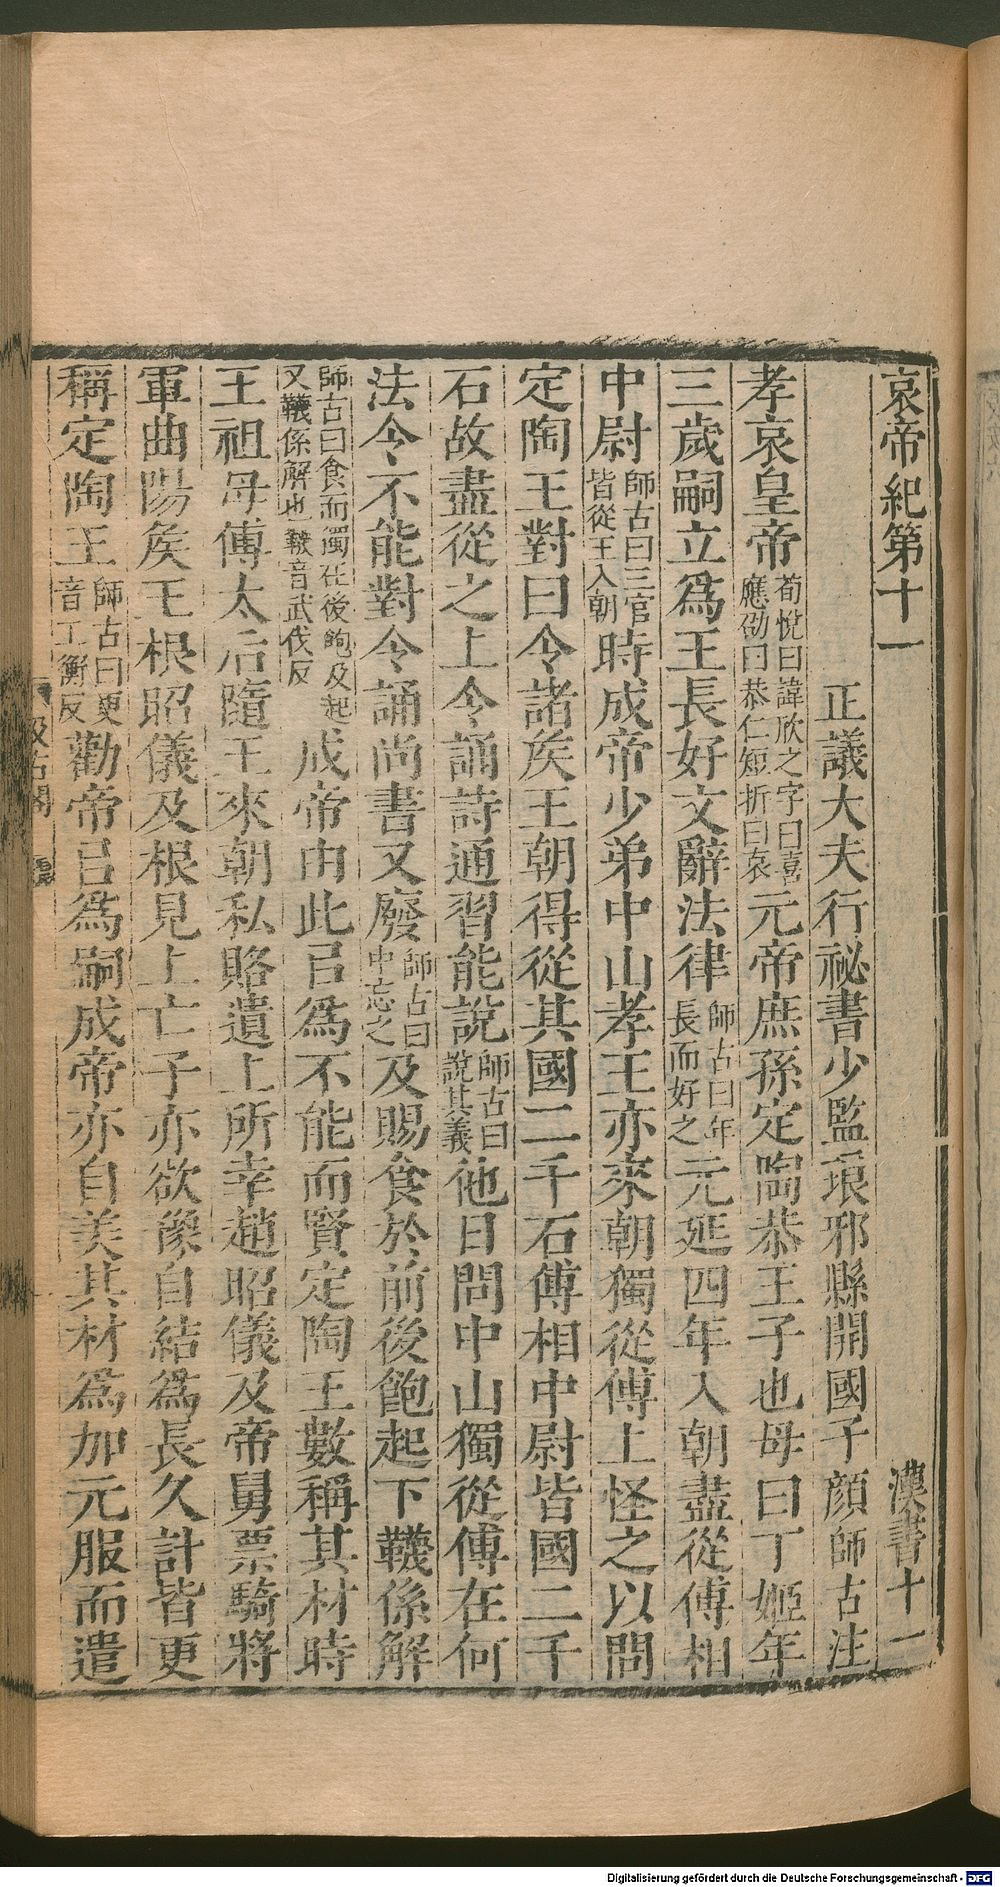 哀帝紀第十一　漢書十一
正議大夫行祕書少監琅邪縣開國子顔師古注
孝哀皇帝荀悅曰諱欣之字曰喜應劭曰恭仁短折曰哀元帝庶孫定陶恭王子也母曰丁姬年
三歲嗣立爲王長好文辭法律師古曰年長而好之元延四年入朝盡從傅相
中尉師古曰三官皆從王入朝時成帝少弟中山孝王亦來朝獨從傅上怪之以問
定陶王對曰令諸矦王朝得從其國二千石傅相中尉皆國二千
石故盡從之上令誦詩通習能說師古曰說其義他日問中山獨從傅在何
法令不能對令誦尚書又廢師古曰中忘之及賜食於前後飽起下韈係解
師古曰食而獨在後飽及起又韈係解也韈音武伐反成帝由此㠯爲不能而賢定陶王數稱其材時
王祖母傅太后隨王來朝私賂遺上所幸趙昭儀及帝舅票騎將
軍曲陽矦王根昭儀及根見上亡子亦欲豫自結爲長久計皆更
稱定陶王師古曰更音工衡反勸帝㠯爲嗣成帝亦自美其材爲加元服而遣
Digitalisierung gefördert durch die Deutsche Forschungsgemeinschaft - DFG